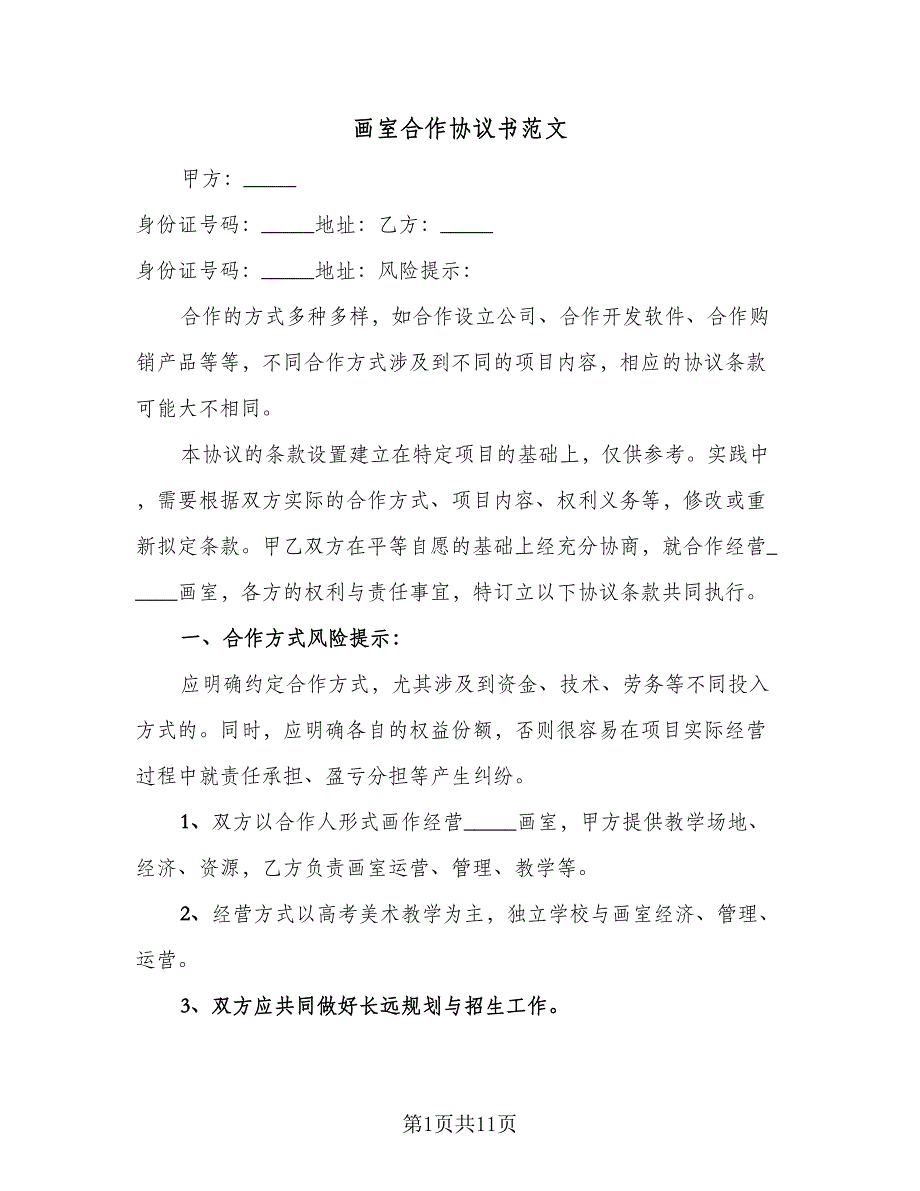 画室合作协议书范文
甲方：_____
身份证号码：_____地址：乙方：_____
身份证号码：_____地址：风险提示：
合作的方式多种多样，如合作设立公司、合作开发软件、合作购
销产品等等，不同合作方式涉及到不同的项目内容，相应的协议条款
可能大不相同。
本协议的条款设置建立在特定项目的基础上，仅供参考。实践中
，需要根据双方实际的合作方式、项目内容、权利义务等，修改或重
新拟定条款。甲乙双方在平等自愿的基础上经充分协商，就合作经营_
____画室，各方的权利与责任事宜，特订立以下协议条款共同执行。
一、合作方式风险提示：
应明确约定合作方式，尤其涉及到资金、技术、劳务等不同投入
方式的。同时，应明确各自的权益份额，否则很容易在项目实际经营
过程中就责任承担、盈亏分担等产生纠纷。
1、双方以合作人形式画作经营_____画室，甲方提供教学场地、
经济、资源，乙方负责画室运营、管理、教学等。
2、经营方式以高考美术教学为主，独立学校与画室经济、管理、
运营。
3、双方应共同做好长远规划与招生工作。
第1页共11页